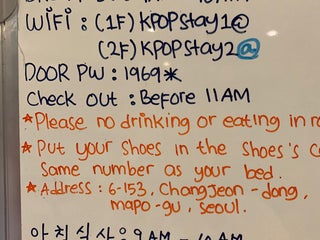 WiFi : (1F) KPOPStay1@
(2F) KPOPStay2@
DOOR PW : 1969*
Check out : Before 11AM
*Please no drinking or eating in
* Put your shoes in the shoe's
Same number as your bed.
* Address : 6-153, Changjeon-dong,
mapo-gu, Seoul.
아침식사 : 9AM - 10AM